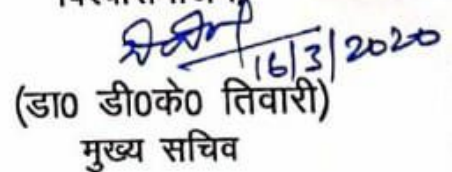 16/3/2020
(डा0 डी0के0 तिवारी)
मुख्य सचिव